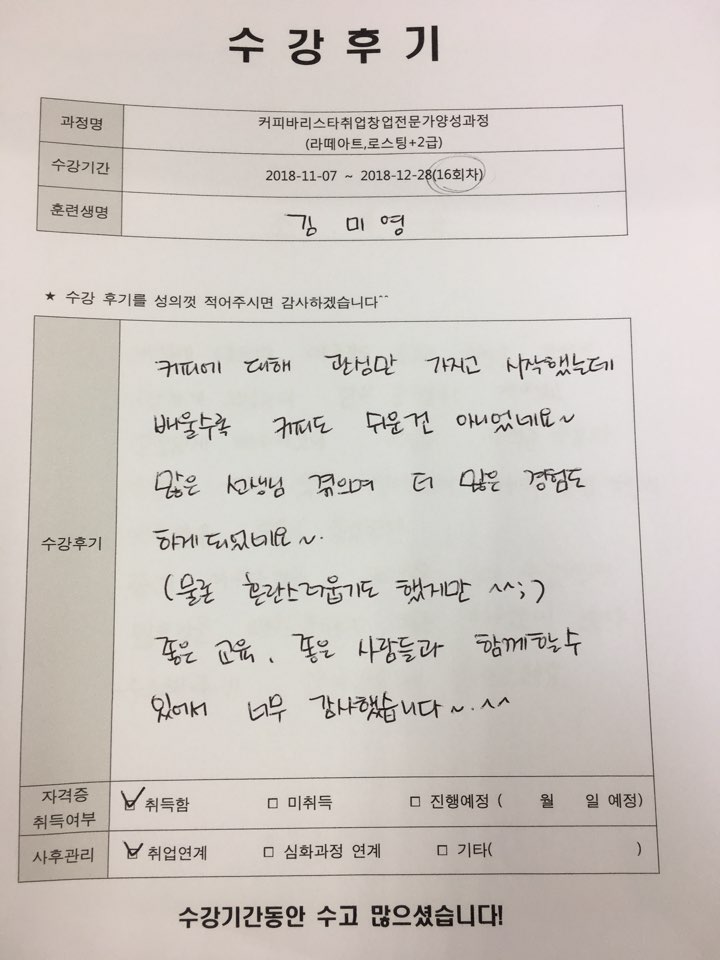 수강후기
과정명
커피바리스타취업창업전문가양성과정
(라떼아트,로스팅+2급)
수강기간
2018-11-07 ~ 2018-12-28(16회차)
훈련생명
김미영
★ 수강 후기를 성의껏 적어주시면 감사하겠습니다^^
수강후기
커피에 대해 관심만 가지고 시작했는데
배울수록 커피도 쉬운건 아니었네요~
많은 선생님 겪으며 더 많은 경험도
하게되었네요~.
(물론 혼란스러웁기도 했지만 ^^;)
좋은 교육, 좋은 사람들과 함께할수
있어서 너무 감사했습니다~.^^
자격증
취득여부
☑ 취득함 □ 미취득 □ 진행예정 ( 월 일 예정)
사후관리
☑ 취업연계 □ 심화과정 연계 □ 기타( )
수강기간동안 수고 많으셨습니다!